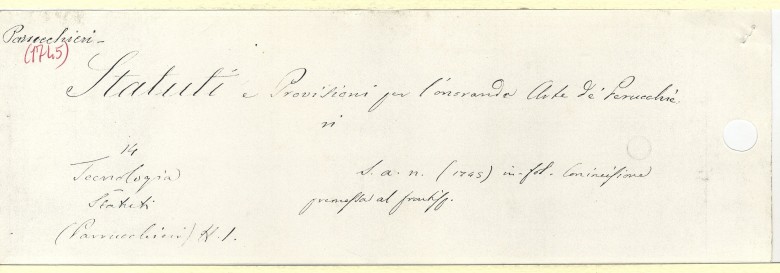 Parrucchieri -
(1745)
Statuti e Provisioni per l'onoranda Arte de' Perucchie
ri
14
Tecnologia
Statuti
(Parrucchieri) N. 1.
s. a. n. (1745) in-fol. Con incisione
premessa al frontisp.